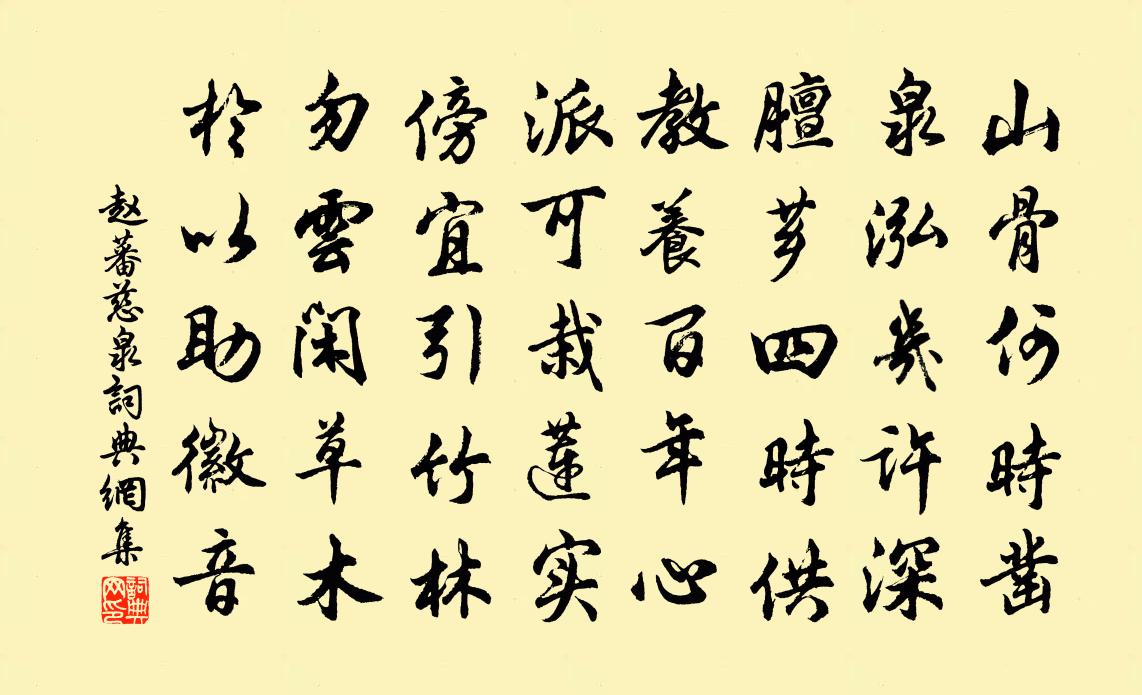 山骨何時凿
泉泓幾許深
膻芗四時供
教養百年心
派可栽蓮实
傍宜引竹林
勿雲閑草木
於以助徽音
赵蕃慈泉詞典網集
詞典网印